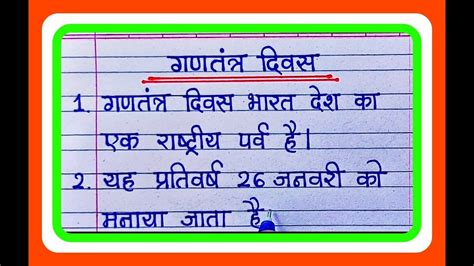 गणतंत्र दिवस
1. गणतंत्र दिवस भारत देश का
एक राष्ट्रीय पर्व है।
2. यह प्रतिवर्ष 26 जनवरी को
मनाया जाता है